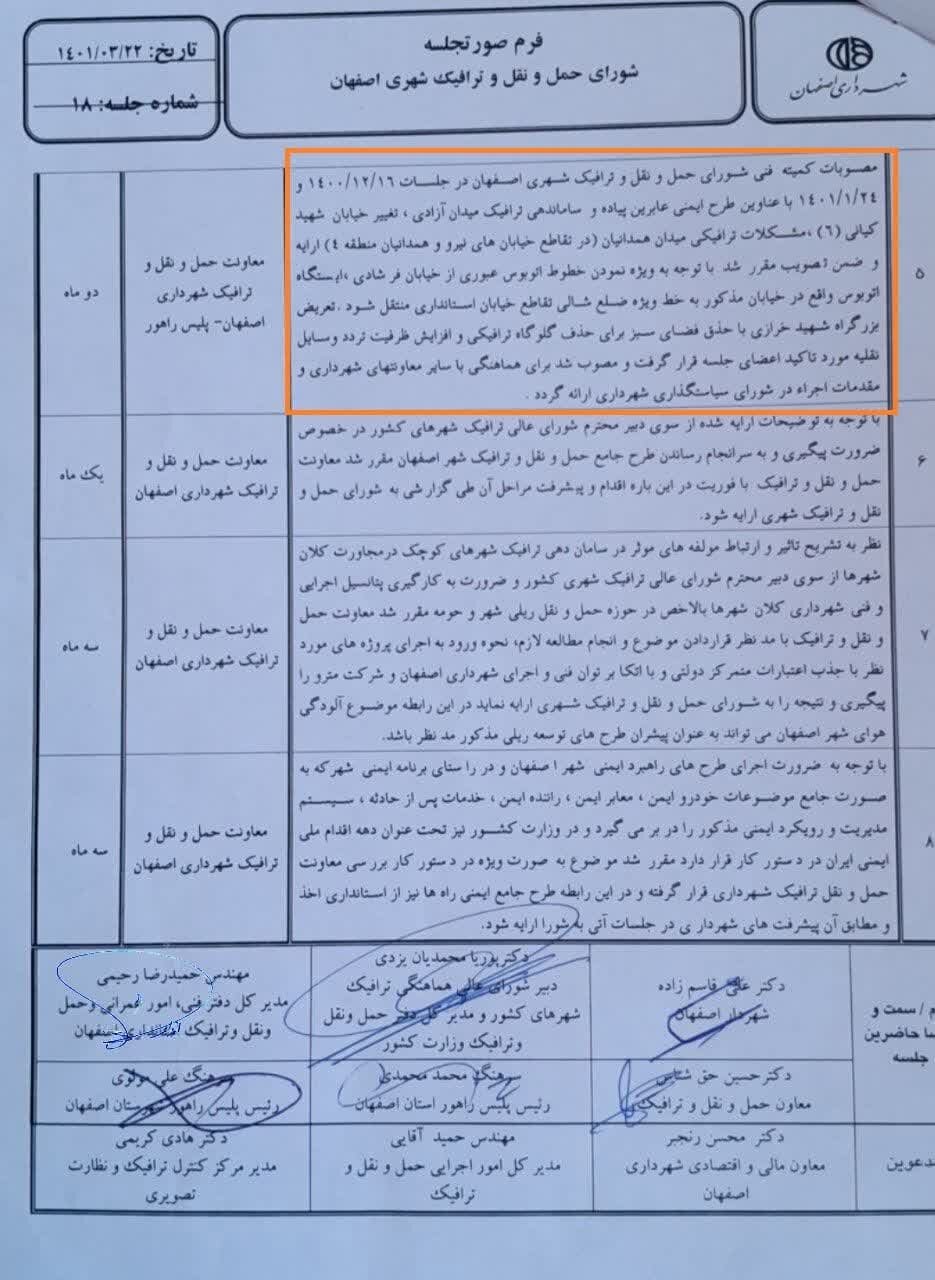 شهرداری اصفهان
فرم صورتجلسه
شورای حمل و نقل و ترافیک شهری اصفهان
تاریخ: ۱٤۰۱/۰۳/۲۲
شماره جلسه: ۱۸
۵
مصوبات کمیته فنی شورای حمل و نقل و ترافیک شهری اصفهان در جلسات ۱٤۰۰/۱۲/۱٦ و
۱٤۰۱/۱/۲٤ با عناوین طرح ایمنی عابرین پیاده و ساماندهی ترافیک میدان آزادی ، تغییر خیابان شهید
کیانی (٦) ،مشکلات ترافیکی میدان همدانیان (در تقاطع خیابان های نیرو و همدانیان منطقه ٤) ارایه
و ضمن تصویب مقرر شد با توجه به ویژه نمودن خطوط اتوبوس عبوری از خیابان فرشادی ،ایستگاه
اتوبوس واقع در خیابان مذکور به خط ویژه ضلع شالی تقاطع خیابان استانداری منتقل شود . تعریض
بزرگراه شهید خرازی با حذق فضای سبز برای حذف گلوگاه ترافیکی و افزایش ظرفیت تردد وسایل
نقلیه مورد تاکید اعضای جلسه قرار گرفت و مصوب شد برای هماهنگی با سایر معاونتهای شهرداری و
مقدمات اجراء در شورای سیاستگذاری شهرداری ارائه گردد .
معاونت حمل و نقل و
ترافیک شهرداری
اصفهان- پلیس راهور
دو ماه
۶
با توجه به توضیحات ارایه شده از سوی دبیر محترم شورای عالی ترافیک شهرهای کشور در خصوص
ضرورت پیگیری و به سرانجام رساندن طرح جامع حمل و نقل و ترافیک شهر اصفهان مقرر شد معاونت
حمل و نقل و ترافیک با فوریت در این باره اقدام و پیشرفت مراحل آن طی گزارشی به شورای حمل و
نقل و ترافیک شهری ارایه شود.
معاونت حمل و نقل و
ترافیک شهرداری اصفهان
یک ماه
۷
نظر به تشریح تاثیر و ارتباط مولفه های موثر در سامان دهی ترافیک شهرهای کوچک درمجاورت کلان
شهرها از سوی دبیر محترم شورای عالی ترافیک شهری کشور و ضرورت به کارگیری پتانسیل اجرایی
و فنی شهرداری کلان شهرها بالاخص در حوزه حمل و نقل ریلی شهر و حومه مقرر شد معاونت حمل
و نقل و ترافیک با مد نظر قراردادن موضوع و انجام مطالعه لازم، نحوه ورود به اجرای پروژه های مورد
نظر با جذب اعتبارات متمرکز دولتی و با اتکا بر توان فنی و اجرای شهرداری اصفهان و شرکت مترو را
پیگیری و نتیجه را به شورای حمل و نقل و ترافیک شهری ارایه نماید در این رابطه موضوع آلودگی
هوای شهر اصفهان می تواند به عنوان پیشران طرح های توسعه ریلی مذکور مد نظر باشد.
معاونت حمل و نقل و
ترافیک شهرداری اصفهان
سه ماه
۸
با توجه به ضرورت اجرای طرح های راهبرد ایمنی شهر اصفهان و در راستای برنامه ایمنی شهرکه به
صورت جامع موضوعات خودرو ایمن ، معابر ایمن ، راننده ایمن ، خدمات پس از حادثه ، سیستم
مدیریت و رویکرد ایمنی مذکور را در بر می گیرد و در وزارت کشور نیز تحت عنوان دهه اقدام ملی
ایمنی ایران در دستور کار قرار دارد مقرر شد موضوع به صورت ویژه در دستور کار بررسی معاونت
حمل و نقل ترافیک شهرداری قرار گرفته و در این رابطه طرح جامع ایمنی راه ها نیز از استانداری اخذ
و مطابق آن پیشرفت های شهرداری در جلسات آتی به شورا ارایه شود.
معاونت حمل و نقل و
ترافیک شهرداری اصفهان
سه ماه
سمت و
حاضرین
جلسه
دکتر علی قاسم زاده
شهردار اصفهان
دکترپوریا محمدیان یزدی
دبیر شورای عالی هماهنگی ترافیک
شهرهای کشور و مدیر کل دفتر حمل ونقل
وترافیک وزارت کشور
مهندس حمیدرضا رحیمی
مدیر کل دفتر فنی، امور عمرانی وحمل
ونقل وترافیک استانداری اصفهان
دکترحسین حق شناس
معاون حمل و نقل و ترافیک
سرهنگ محمد محمدی
رئیس پلیس راهور استان اصفهان
سرهنگ علی مولوی
رئیس پلیس راهور شهرستان اصفهان
دکتر محسن رنجبر
معاون مالی و اقتصادی شهرداری
اصفهان
مهندس حمید آقایی
مدیر کل امور اجرایی حمل و نقل و
ترافیک
دکتر هادی کریمی
مدیر مرکز کنترل ترافیک و نظارت
تصویری